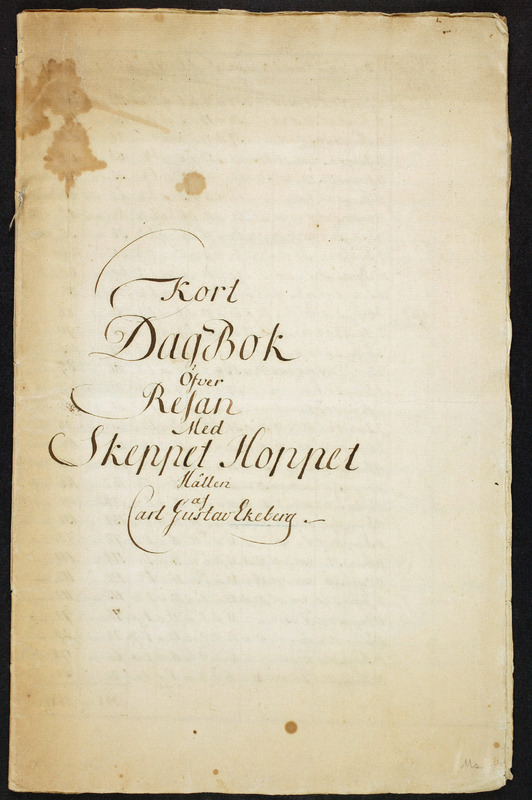 Kort
DagBok
Öfver
Resan
Med
Skeppet Hoppet
Hållen
af
Carl Gustav Ekeberg.
Ms